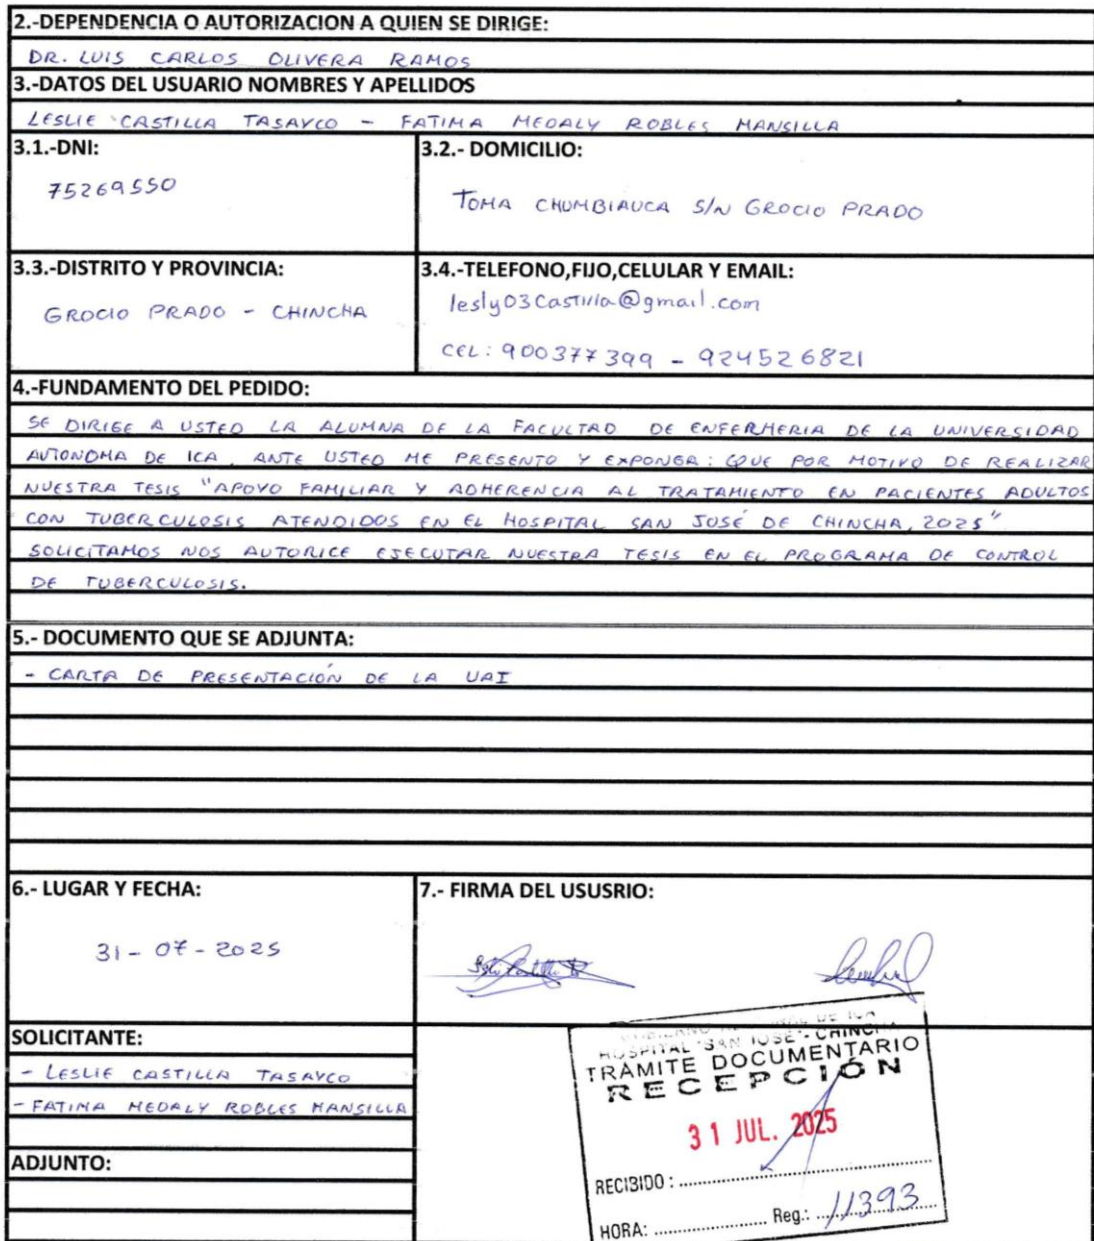 2.-DEPENDENCIA O AUTORIZACION A QUIEN SE DIRIGE:
DR. LUIS CARLOS OLIVERA RAMOS
3.-DATOS DEL USUARIO NOMBRES Y APELLIDOS
LESLIE CASTILLA TASAYCO - FATIMA MEDALY ROBLES MANSILLA
3.1.-DNI:
75269550
3.2.- DOMICILIO:
TOMA CHUMBIAUCA S/N GROCIO PRADO
3.3.-DISTRITO Y PROVINCIA:
GROCIO PRADO - CHINCHA
3.4.-TELEFONO,FIJO,CELULAR Y EMAIL:
lesly03castilla@gmail.com
CEL: 900377399 - 924526821
4.-FUNDAMENTO DEL PEDIDO:
SE DIRIGE A USTED LA ALUMNA DE LA FACULTAD DE ENFERMERIA DE LA UNIVERSIDAD
AUTONOMA DE ICA, ANTE USTED ME PRESENTO Y EXPONGA: QUE POR MOTIVO DE REALIZAR
NUESTRA TESIS "APOYO FAMILIAR Y ADHERENCIA AL TRATAMIENTO EN PACIENTES ADULTOS
CON TUBERCULOSIS ATENDIDOS EN EL HOSPITAL SAN JOSÉ DE CHINCHA, 2025"
SOLICITAMOS NOS AUTORICE EJECUTAR NUESTRA TESIS EN EL PROGRAMA DE CONTROL
DE TUBERCULOSIS.
5.- DOCUMENTO QUE SE ADJUNTA:
- CARTA DE PRESENTACIÓN DE LA UAI
6.- LUGAR Y FECHA:
31-07-2025
7.- FIRMA DEL USUSRIO:
SOLICITANTE:
- LESLIE CASTILLA TASAYCO
- FATIMA MEDALY ROBLES MANSILLA
ADJUNTO:
DE ICA
HOSPITAL "SAN JOSE" - CHINCHA
TRÁMITE DOCUMENTARIO
RECEPCIÓN
31 JUL. 2025
RECIBIDO :
HORA: Reg.: 11393